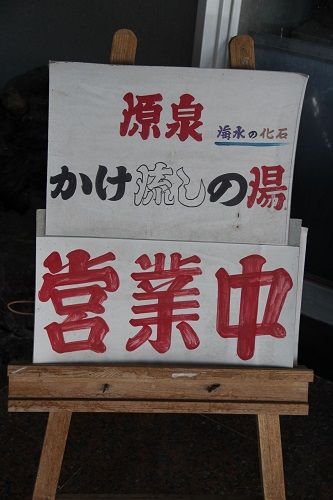 源泉 海水の化石
かけ流しの湯
営業中